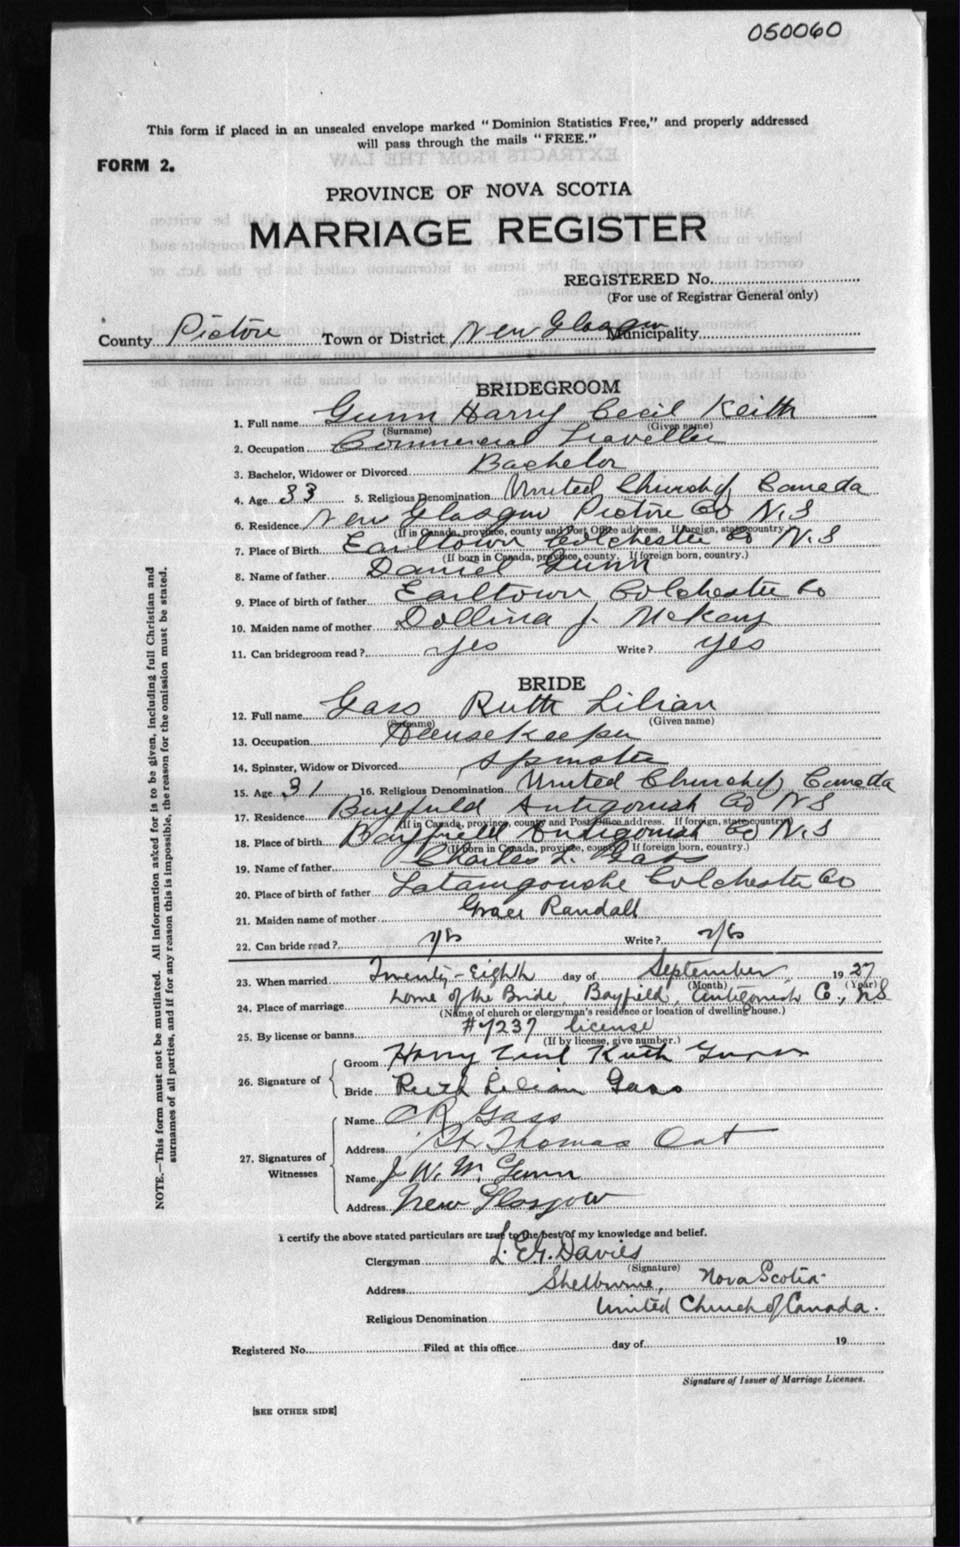 050060
This form if placed in an unsealed envelope marked "Dominion Statistics Free," and properly addressed
will pass through the mails "FREE."
FORM 2.
PROVINCE OF NOVA SCOTIA
MARRIAGE REGISTER
REGISTERED No.
(For use of Registrar General only)
County Pictou Town or District New Glasgow Municipality
BRIDEGROOM
1. Full name Gunn Harry Cecil Keith
(Surname) (Given name)
2. Occupation Commercial Traveller
3. Bachelor, Widower or Divorced Bachelor
4. Age 33 5. Religious Denomination United Church of Canada
6. Residence New Glasgow Pictou Co N.S
(If in Canada, province, county and Post Office address. If foreign, state country)
7. Place of Birth Earltown Colchester Co N.S
(If born in Canada, province, county. If foreign born, country.)
8. Name of father Daniel Gunn
9. Place of birth of father Earltown Colchester Co
10. Maiden name of mother Dollina J. McKay
11. Can bridegroom read? yes Write? yes
BRIDE
12. Full name Gass Ruth Lilian
(Surname) (Given name)
13. Occupation Housekeeper
14. Spinster, Widow or Divorced Spinster
15. Age 31 16. Religious Denomination United Church of Canada
17. Residence Bayfield Antigonish Co N.S
(If in Canada, province, county and Post Office address. If foreign, state country)
18. Place of birth Bayfield Antigonish Co N.S
(If born in Canada, province, county. If foreign born, country.)
19. Name of father Charles L. Gass
20. Place of birth of father Colchester Co
21. Maiden name of mother Grace Randall
22. Can bride read? yes Write? yes
23. When married Twenty-Eighth day of September 1927
(Month) (Year)
24. Place of marriage home of the Bride, Bayfield, Antigonish Co., N.S
(Name of church or clergyman's residence or location of dwelling house.)
25. By license or banns #7237 license
(If by license, give number.)
26. Signature of Groom Harry Cecil Keith Gunn
Bride Ruth Lilian Gass
27. Signatures of Witnesses
Name C R Gass
Address St Thomas Ont
Name J. W. M. Gunn
Address New Glasgow
I certify the above stated particulars are true to the best of my knowledge and belief.
Clergyman Davies
(Signature)
Address Shelburne, Nova Scotia.
Religious Denomination United Church of Canada.
Registered No. Filed at this office day of 19
Signature of Issuer of Marriage Licenses.
[SEE OTHER SIDE]
NOTE.—This form must not be mutilated. All information asked for is to be given, including full Christian and
surnames of all parties, and if for any reason this is impossible, the reason for the omission must be stated.